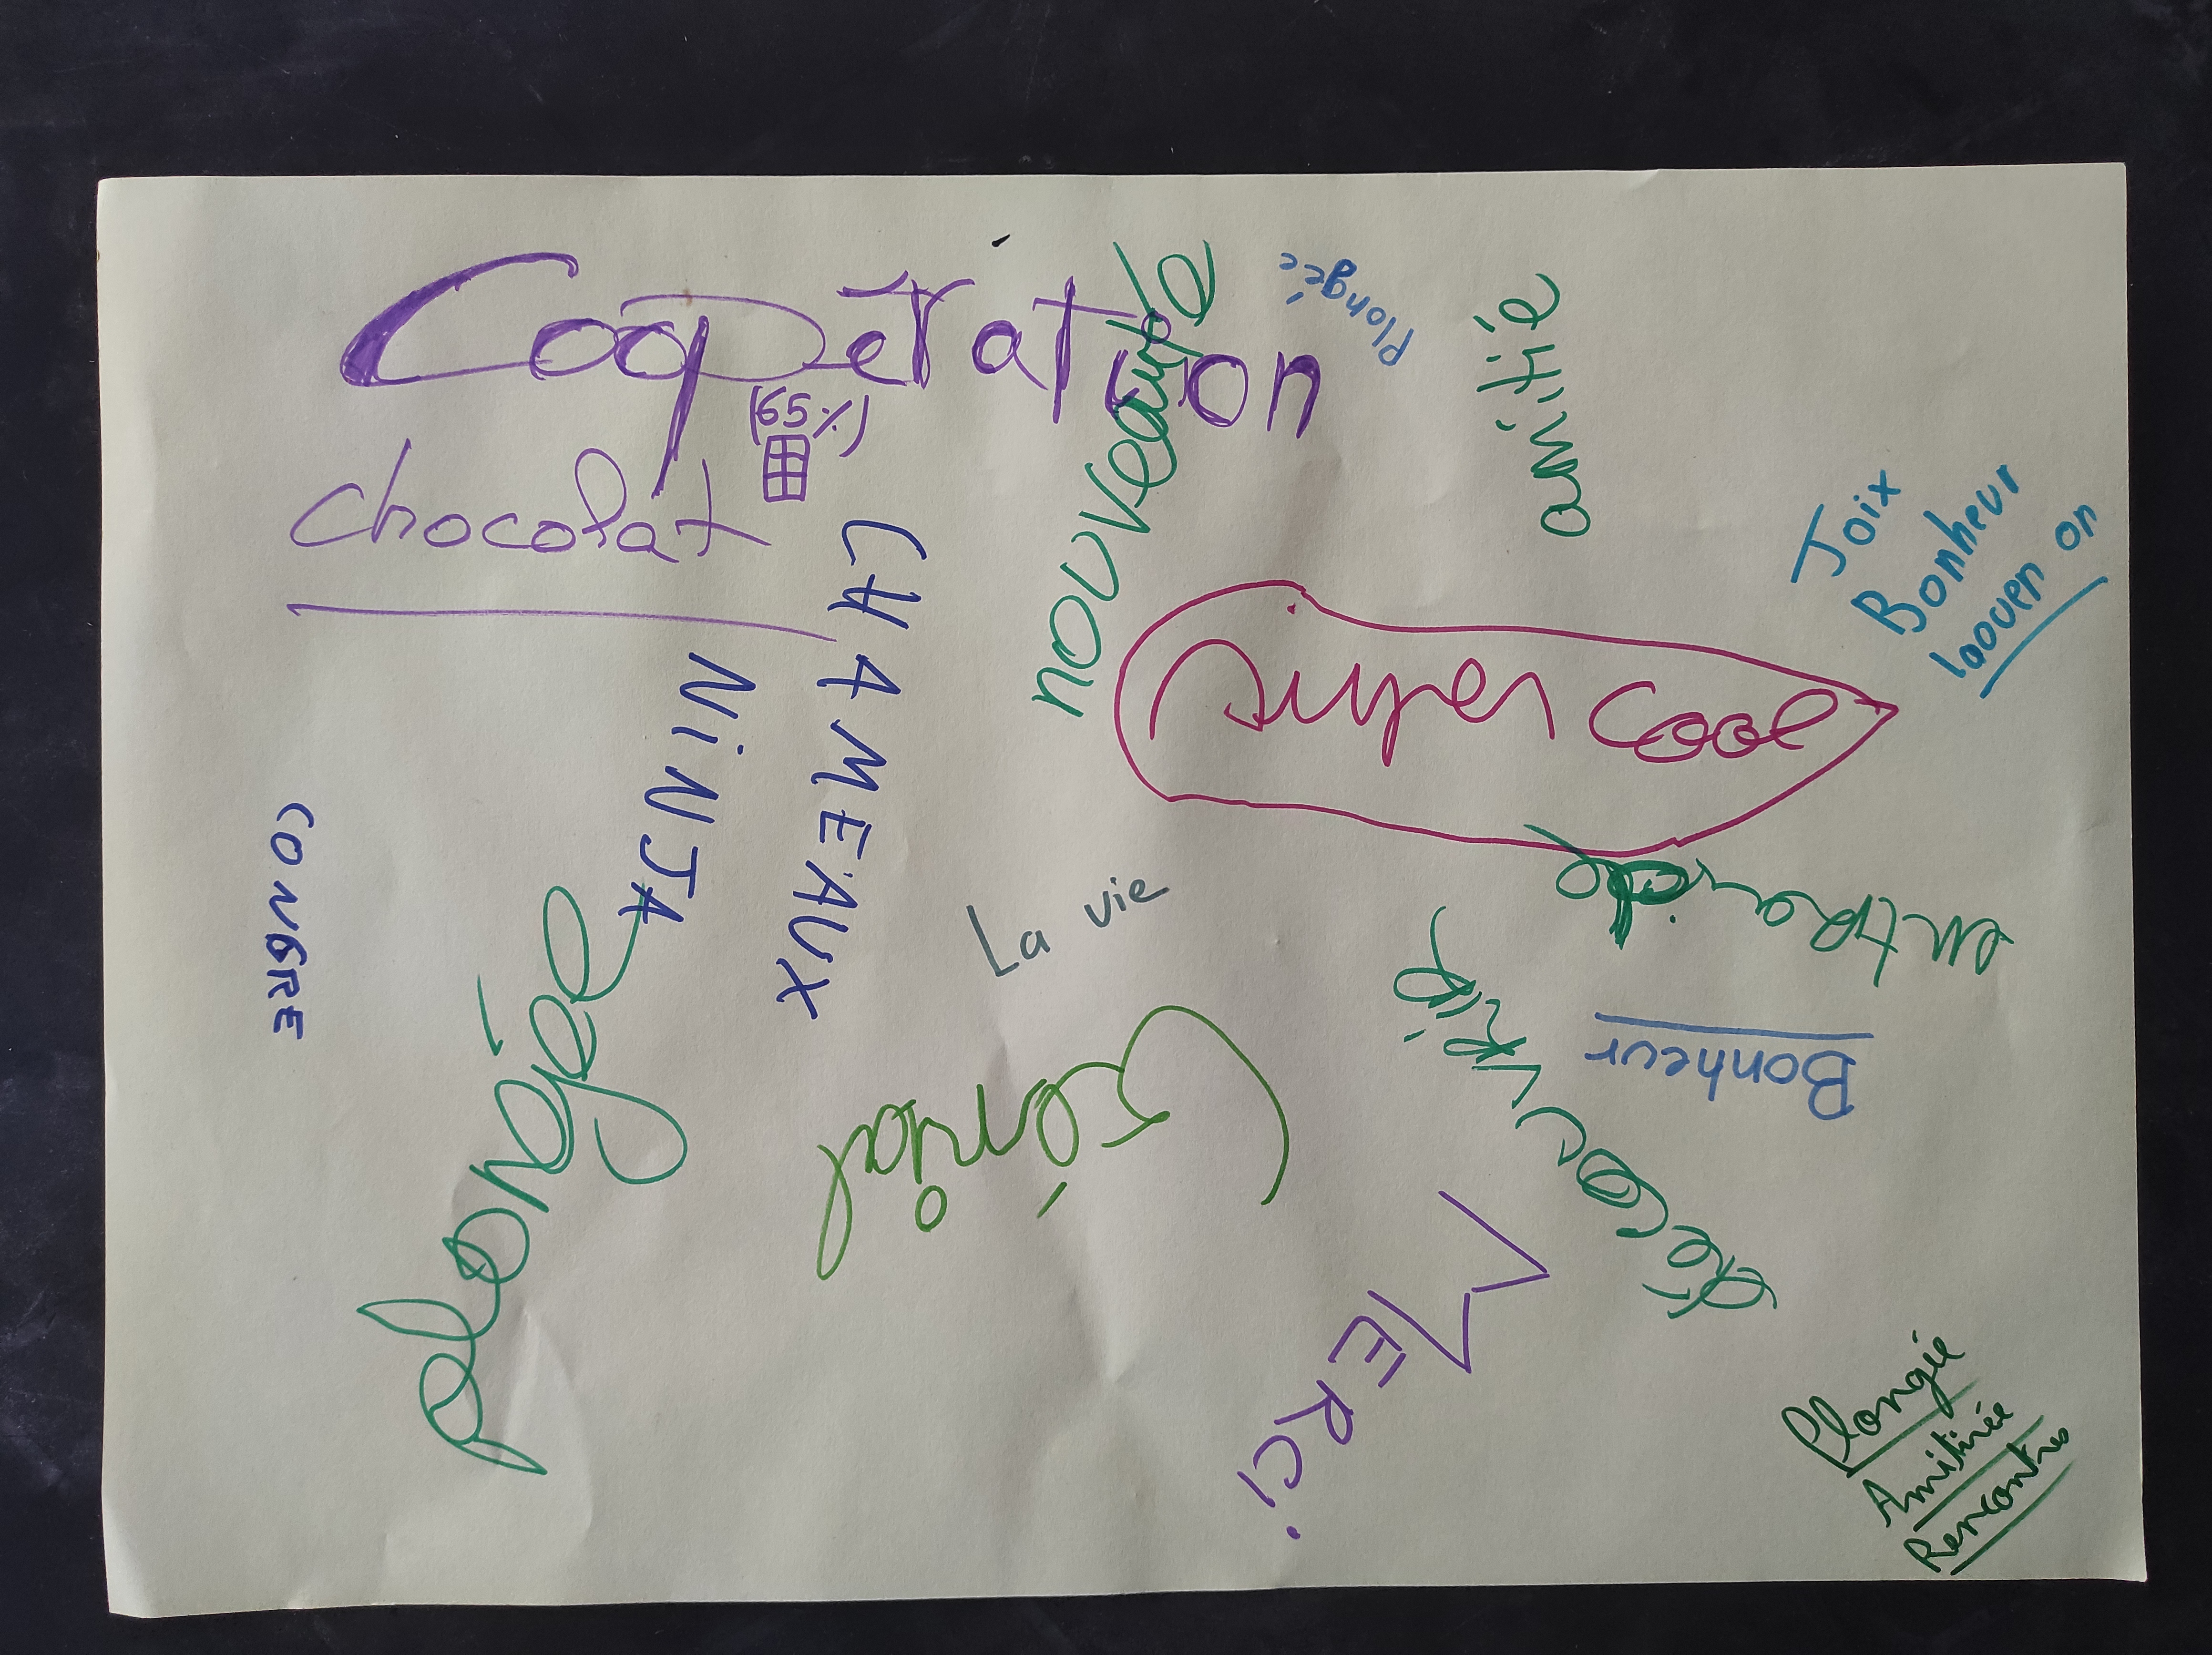 Coopération
(65%)
chocolat
nouveauté
Plongée
amitié
Joix
Bonheur
laouen on
CHAMEAUX
NiNJA
super cool
CONGRE
La vie
entraide
découvrir
Bonheur
plongée
Génial
MERCi
Plongée
Amitiée
Rencontres